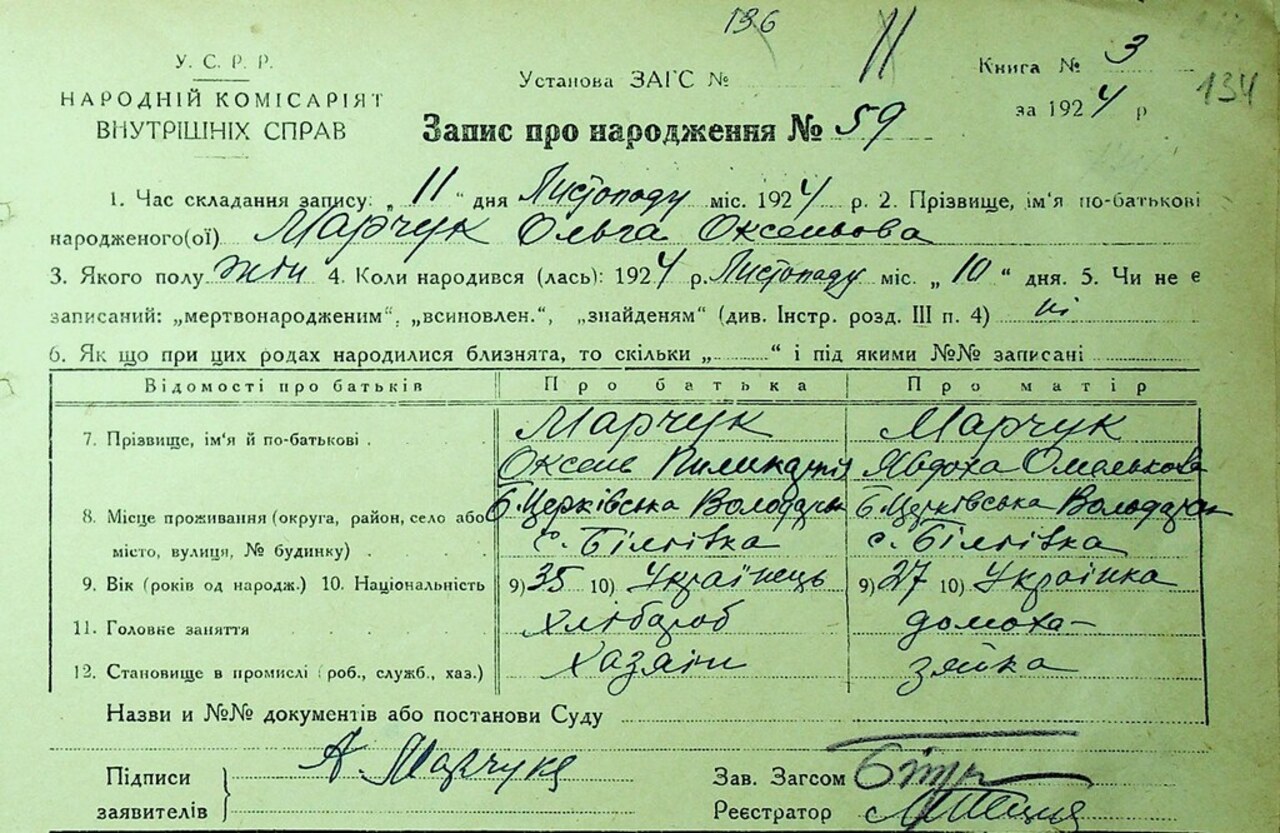 136
У. С. Р. Р.
НАРОДНІЙ КОМІСАРІЯТ
ВНУТРІШНІХ СПРАВ
Установа ЗАГС № 11
Книга № 3
за 1924 р
134
Запис про народження № 59
1. Час складання запису: „ 11 " дня Листопаду міс. 1924 р. 2. Прізвище, ім'я по-батькові
народженого(ої) Марчук Ольга Оксеньова
3. Якого полу жін 4. Коли народився (лась): 1924 р. Листопаду міс. „ 10 " дня. 5. Чи не є
записаний: „мертвонародженим", „всиновлен.", „знайденям" (див. Інстр. розд. III п. 4) ні
6. Як що при цих родах народилися близнята, то скільки „ " і під якими №№ записані
Відомості про батьків Про батька Про матір
7. Прізвище, ім'я й по-батькові . Марчук Марчук
Оксень Явдоха Омелькова
8. Місце проживання (округа, район, село або Б. Церківська Б. Церківська
місто, вулиця, № будинку) . с. с.
9. Вік (років од народж.) 10. Національність 9) 35 10) Українець 9) 27 10) Українка
11. Головне заняття Хлібороб домоха-
12. Становище в промислі (роб., служб., хаз.) Хазяін зяйка
Назви и №№ документів або постанови Суду
Підписи А. Марчук
заявителів
Зав. Загсом
Реєстратор